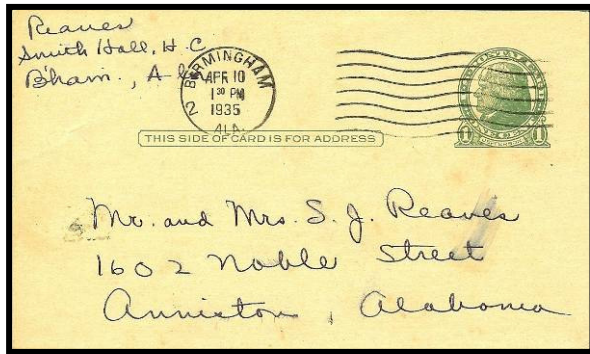 Reaves
Smith Hall, H.C
B'ham., Al
2 BIRMINGHAM
APR 10
1 30 PM
1935
ALA.
THIS SIDE OF CARD IS FOR ADDRESS
1 1
Mr. and Mrs. S. J. Reaves
1602 Noble Street
Anniston, Alabama